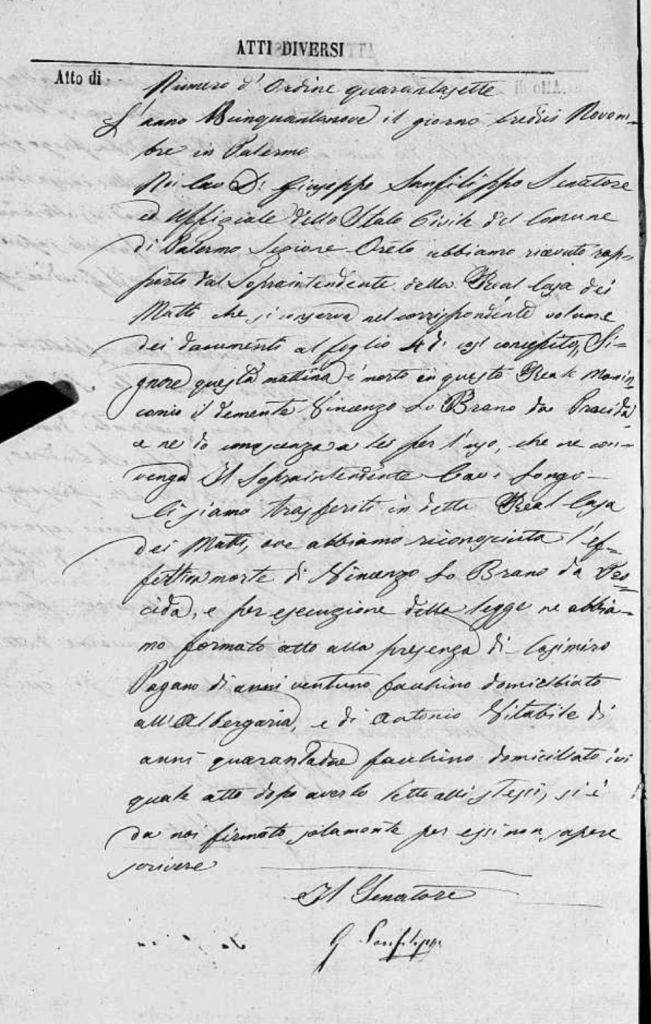 ATTI DIVERSI
Atto di
Numero d'Ordine quarantasette
L'anno cinquantanove il giorno tredici Novem-
bre in Palermo
Noi Cav. D. Giuseppe Sanfilippo Senatore
ed Uffiziale dello Stato Civile del Comune
di Palermo Sezione Oreto abbiamo ricevuto rap-
porto dal Sopraintendente della Real Casa dei
Matti che si conserva nel corrispondente volume
dei documenti al foglio 4 di così concepito, Si-
gnore questa mattina è morto in questo Real Mani-
comio il demente Vincenzo Lo Brano da Procida
e ne do conoscenza a lei per l'uso, che ne con-
venga Il Sopraintendente Cav.
Ci siamo trasferiti in detta Real Casa
dei Matti, ove abbiamo riconosciuta l'ef-
fettiva morte di Vincenzo Lo Brano da Pro-
cida, e per esecuzione della legge ne abbia-
mo formato atto alla presenza di Casimiro
Pagano di anni ventuno facchino domiciliato
all'Albergaria, e di Antonio Vitabile di
anni quarantadue facchino domiciliato ivi
quale atto dopo averlo letto alli stessi, si è
da noi firmato solamente per essi non sapere
scrivere
Il Senatore
G Sanfilippo